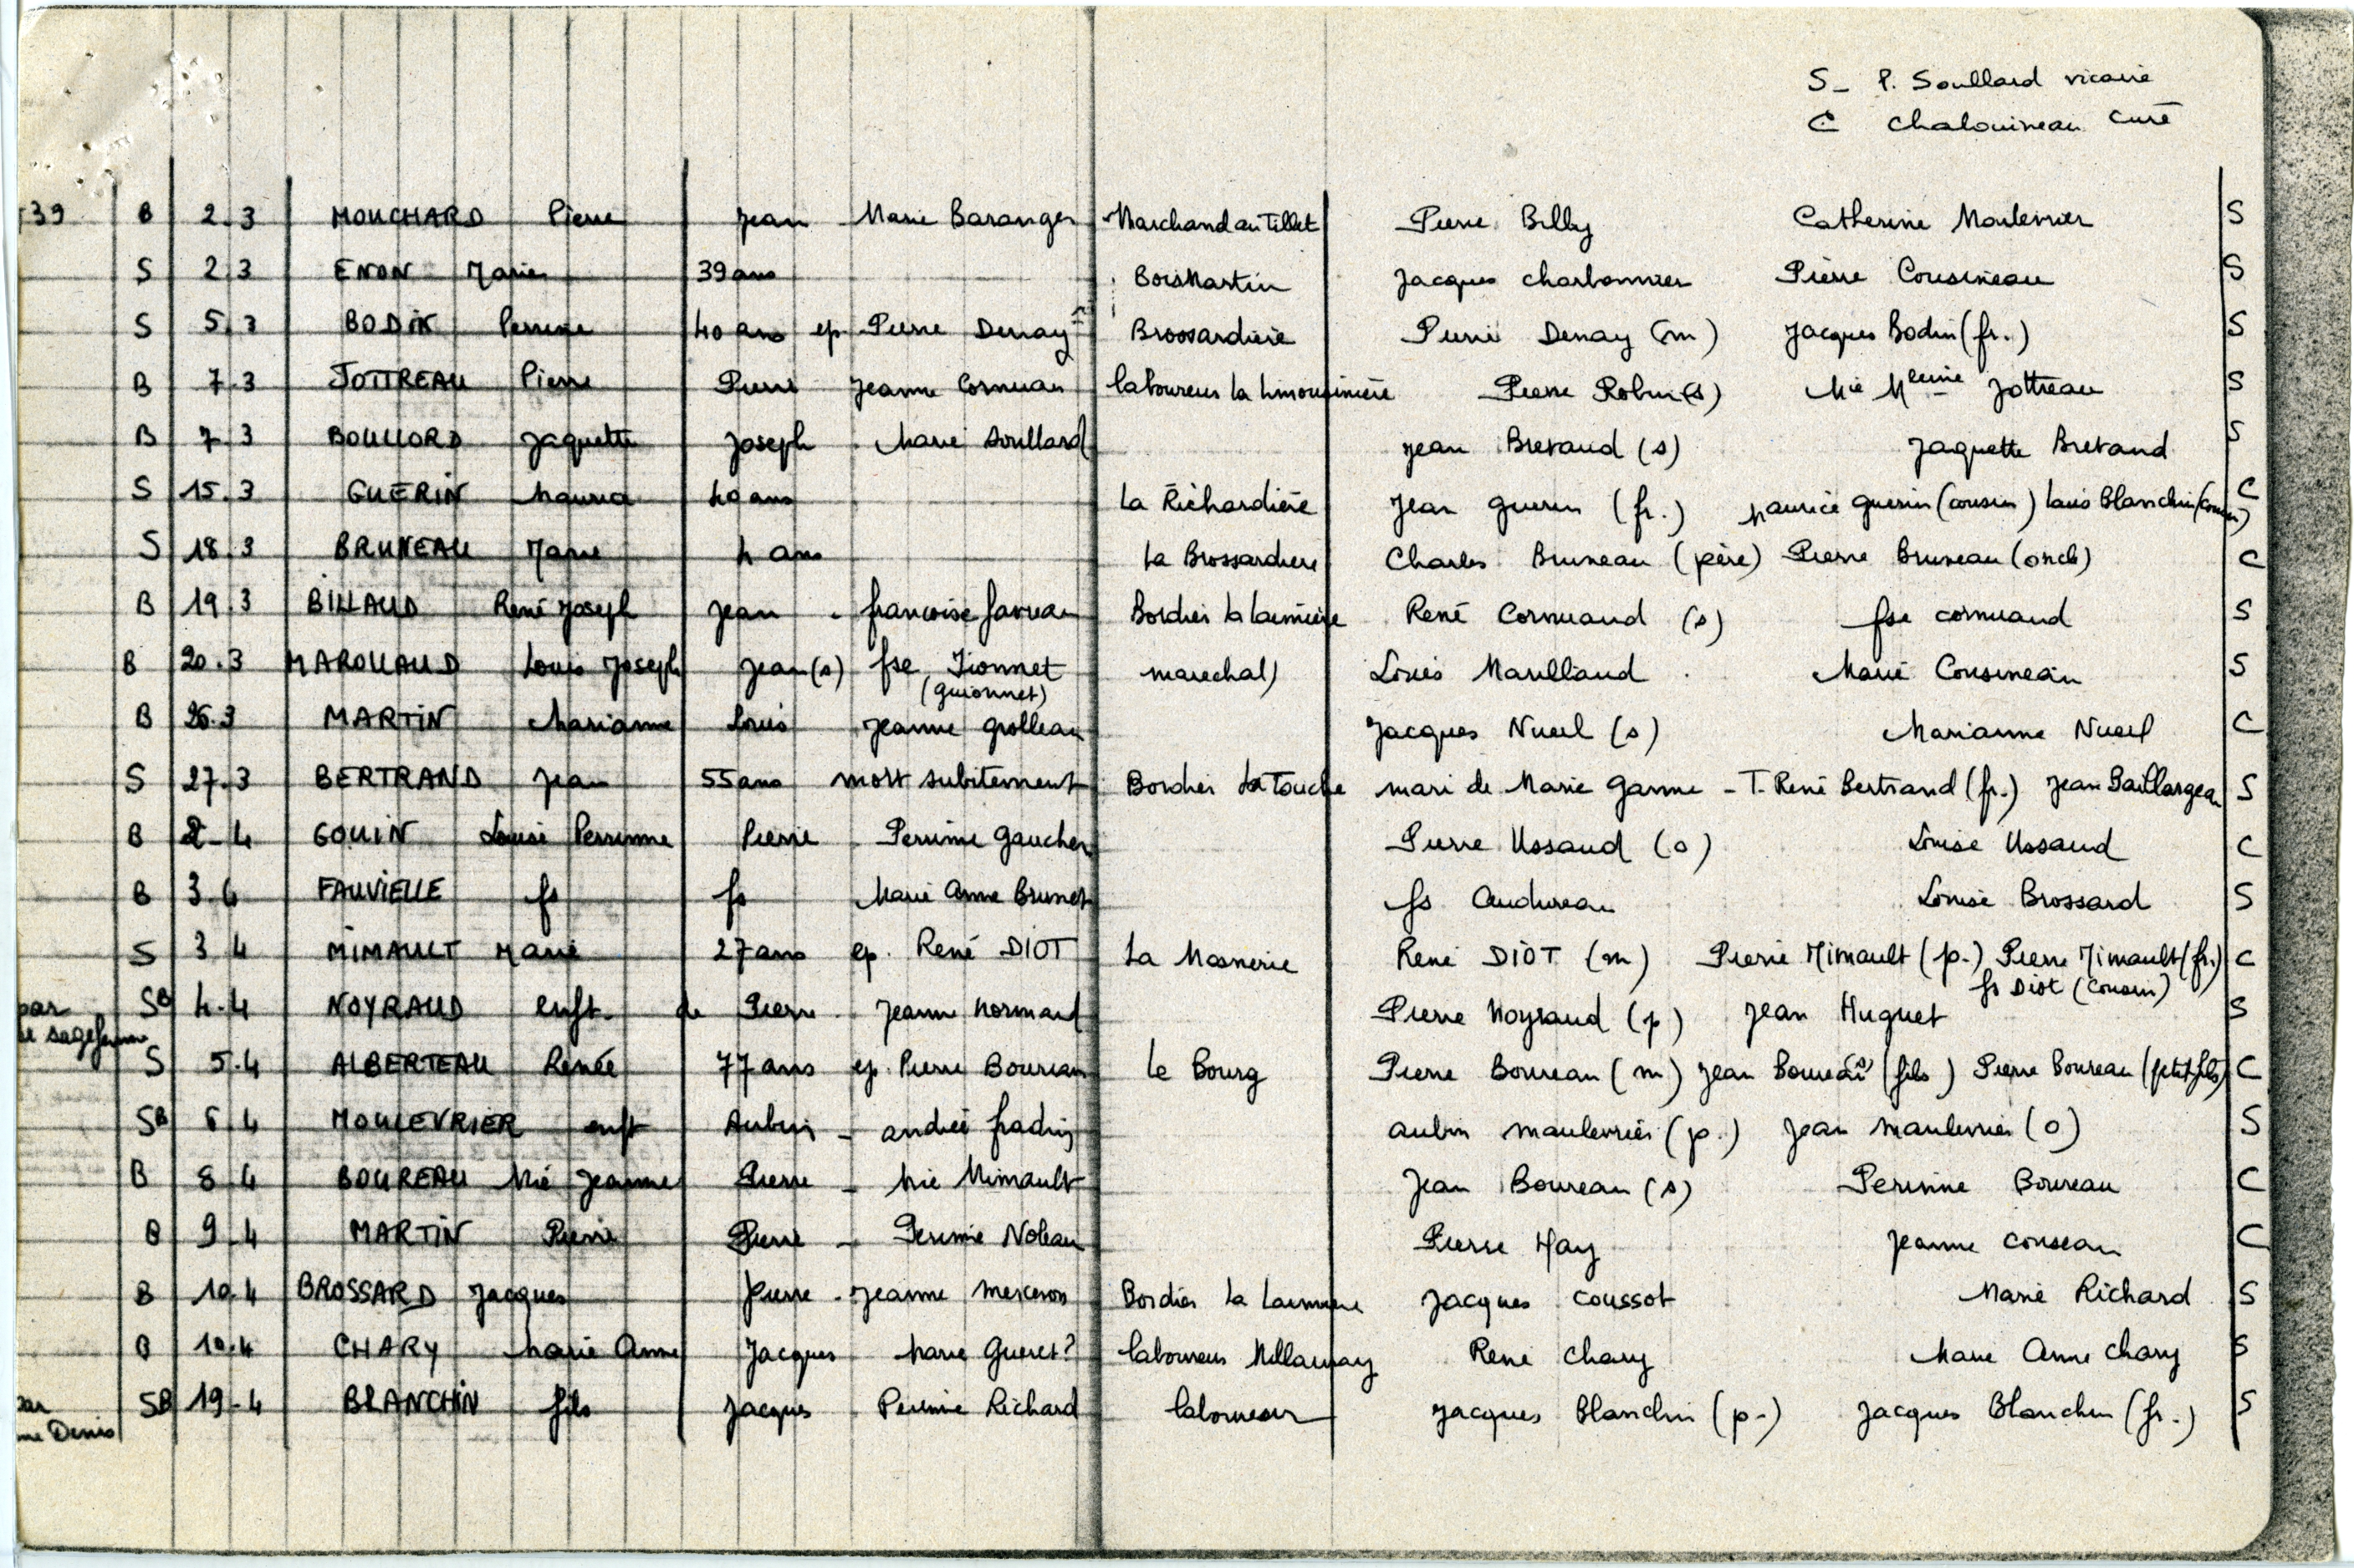 S_ P. Soullard vicaire
C Chalouineau curé
739 B 2.3 MOUCHARD Pierre Jean - Marie Baranger Marchand au Tillet Pierre Billy Catherine Maulevrier S
S 2.3 ENON Marie 39 ans BoisMartin Jacques Charbonnier Pierre Cousineau S
S 5.3 BODIN Perrine 40 ans ep Pierre Denay Brossardière Pierre Denay (m) Jacques Bodin (fr.) S
B 7.3 JOTTREAU Pierre Pierre Jeanne Cornuau laboureur la Limousinière Pierre Robin (s) Mie Mleine Jottreau S
B 7.3 BOULLORD Jaquette Joseph - Marie Soullard Jean Bretaud (s) Jaquette Bretaud S
S 15.3 GUERIN Maurice 40 ans La Richardière Jean Guerin (fr.) Maurice Guerin (cousin) Louis Blanchin (cousin) C
S 18.3 BRUNEAU Marie 4 ans La Brossardiere Charles Bruneau (père) Pierre Bruneau (oncle) C
B 19.3 BILLAUD René Joseph Jean - francoise favreau Bordier la René Cornuaud (s) fse cornuaud S
B 20.3 MAROLLAUD Louis Joseph Jean (s) fse Jionnet marechal) Louis Marillaud Marie Cousineau S
(guionnet)
B 26.3 MARTIN Marianne Louis Jeanne Grolleau Jacques Nueil (s) Marianne Nueil C
S 27.3 BERTRAND Jean 55 ans mort subitement Bordier La Touche mari de Marie Garme - T. René Bertrand (fr.) Jean Baillargeau S
B 2-4 GOUIN Louise Perrinne Pierre - Perrine Gaucher Pierre Ussaud (s) Louise Ussaud C
B 3.4 FAUVIELLE fs fs Marie Anne Brunet fs Audureau Louise Brossard S
S 3.4 MIMAULT Marie 27 ans ep. René DIOT La Mosnerie René DIOT (m) Pierre Mimault (p.) Pierre Mimault (fr.) C
fs Diot (cousin)
par SB 4.4 NOYRAUD enft. de Pierre - Jeanne Normand Pierre Noyraud (p) Jean Huguet S
sagefemme
S 5.4 ALBERTEAU Renée 77 ans ep. Pierre Boureau Le Bourg Pierre Boureau (m) Jean Boureau (s) (fils) Pierre Boureau (petit fils) C
SB 6.4 MOULEVRIER enft Aubin - andrée fradin aubin maulevrier (p.) Jean maulevrier (o) S
B 8.4 BOUREAU Mie Jeanne Pierre - Mie Mimault Jean Boureau (s) Perinne Boureau C
B 9.4 MARTIN Pierre Pierre - Perinne Noleau Pierre Hay Jeanne couseau C
B 10.4 BROSSARD Jacques Pierre - Jeanne merceron Bordier la Jacques coussot Marie Richard S
B 10.4 CHARY Marie Anne Jacques Marie Gueret? laboureur René Chary Marie Anne Chary S
par SB 19.4 BLANCHIN fils Jacques Perinne Richard laboureur Jacques Blanchin (p.) Jacques Blanchin (fr.) S
Denis